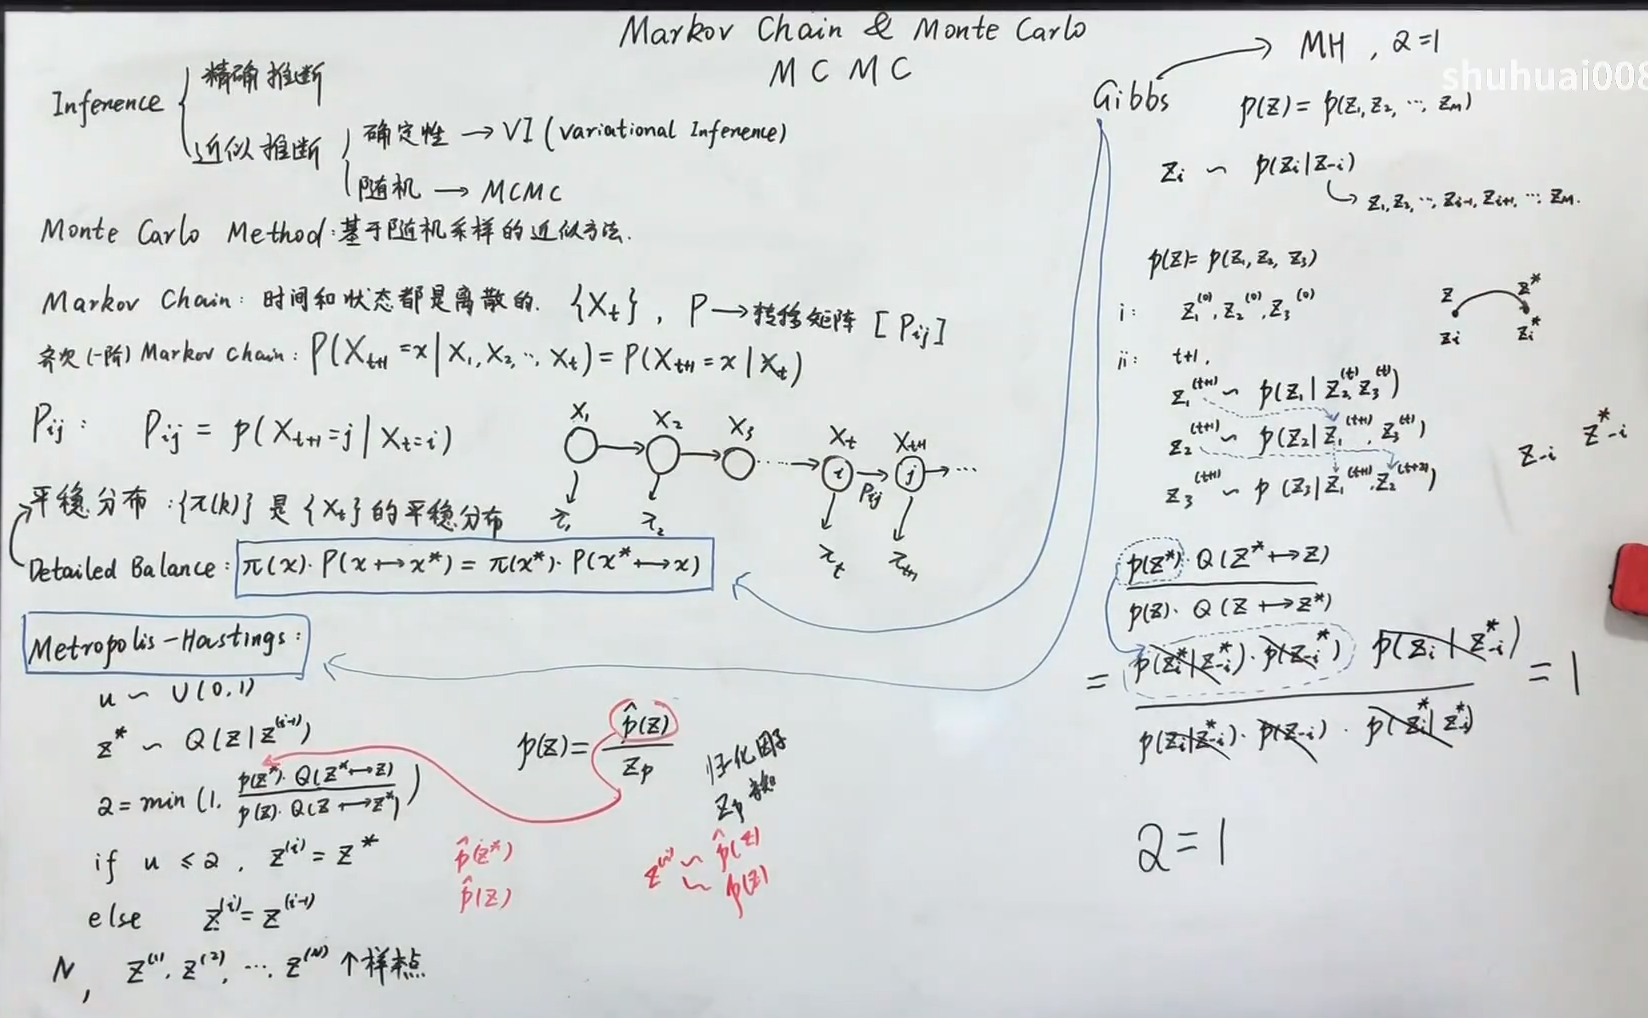 Markov Chain & Monte Carlo
MCMC
Inference
精确推断
近似推断
确定性 → VI (variational Inference)
随机 → MCMC
Monte Carlo Method: 基于随机采样的近似方法.
Markov Chain: 时间和状态都是离散的. {Xt}, P → 转移矩阵 [Pij]
齐次(一阶) Markov Chain: P(Xt+1 = x | X1, X2, ..., Xt) = P(Xt+1 = x | Xt)
Pij: Pij = p(Xt+1 = j | Xt = i)
X1 X2 X3 Xt Xt+1
i Pij j ...
π1 π2 πt πt+1
平稳分布: {π(k)} 是 {Xt} 的平稳分布
Detailed Balance: π(x)·P(x ↦ x*) = π(x*)·P(x* ↦ x)
Metropolis-Hastings:
u ~ U(0,1)
z* ~ Q(z|z^(i-1))
α = min(1, p(z*)·Q(z* ↦ z) / p(z)·Q(z ↦ z*))
if u ≤ α, z^(i) = z*
else z^(i) = z^(i-1)
N, z^(1), z^(2), ..., z^(N) 个样本点
p̂(z*)
p̂(z)
p(z) = p̂(z) / Zp
归一化因子
Zp
z^(i) ~ p̂(z)
~ p(z)
Gibbs → MH, α = 1
shuhuai008
p(z) = p(z1, z2, ..., zM)
zi ~ p(zi|z-i)
z1, z2, ..., zi-1, zi+1, ..., zM.
p(z) = p(z1, z2, z3)
i: z1^(0), z2^(0), z3^(0)
z z*
zi zi*
ii: t+1,
z1^(t+1) ~ p(z1 | z2^(t), z3^(t))
z2^(t+1) ~ p(z2 | z1^(t+1), z3^(t))
z3^(t+1) ~ p(z3 | z1^(t+1), z2^(t+1))
z-i z*-i
p(z*)·Q(z* ↦ z)
p(z)·Q(z ↦ z*)
= p(zi*|z-i*)·p(z-i*) p(zi|z-i*) = 1
p(zi|z-i*)·p(z-i)·p(zi*|z-i*)
α = 1